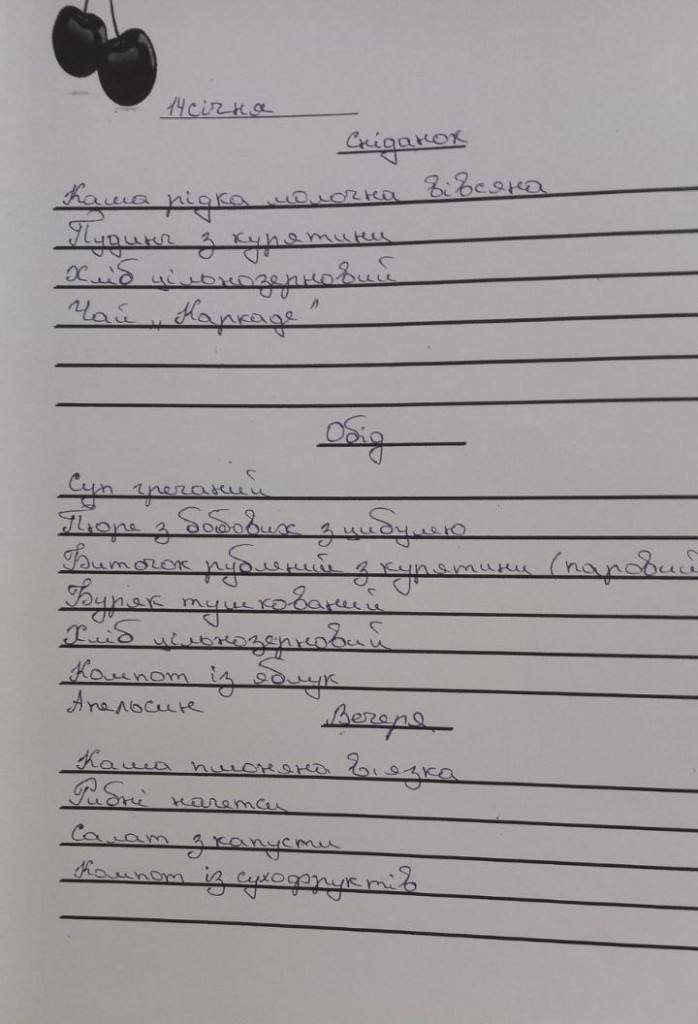 14 січня
Сніданок
Каша рідка молочна вівсяна
Пудинг з курятини
Хліб цільнозерновий
Чай „Каркаде"
Обід
Суп гречаний
Пюре з бобових з цибулею
Биточок рублений з курятини (паровий
Буряк тушкований
Хліб цільнозерновий
Компот із яблук
Апельсин
Вечеря
Каша пшоняна в,язка
Рибні нагетси
Салат з капусти
Компот із сухофруктів